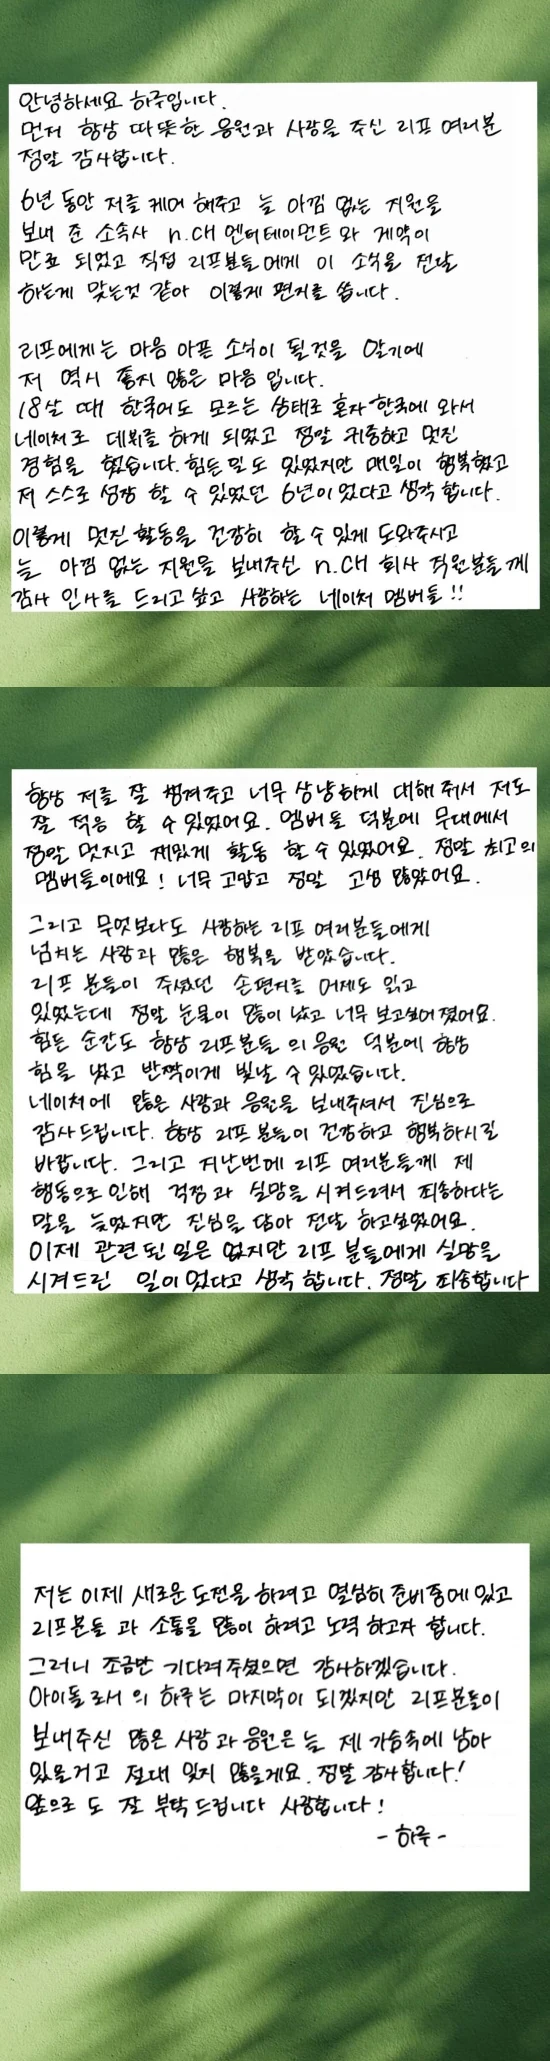 안녕하세요 하루입니다.
먼저 항상 따뜻한 응원과 사랑을 주신 리프 여러분
정말 감사합니다.
6년 동안 저를 케어 해주고 늘 아낌 없는 지원을
보내 준 소속사 n.CH 엔터테이먼트와 계약이
만료 되었고 직접 리프분들에게 이 소식을 전달
하는게 맞는것 같아 이렇게 편지를 씁니다.
리프에게는 마음 아픈 소식이 될것을 알기에
저 역시 좋지 않은 마음 입니다.
18살 때 한국어도 모르는 상태로 혼자 한국에 와서
네이처로 데뷔를 하게 되었고 정말 귀중하고 멋진
경험을 했습니다. 힘든 일도 있었지만 매일이 행복했고
저 스스로 성장 할 수 있었던 6년이었다고 생각합니다.
이렇게 멋진 활동을 건강히 할 수 있게 도와주시고
늘 아낌 없는 지원을 보내주신 n.CH 회사 직원분들께
감사 인사를 드리고 싶고 사랑하는 네이처 멤버들!!
항상 저를 잘 챙겨주고 너무 상냥하게 대해 줘서 저도
잘 적응 할 수 있었어요. 멤버들 덕분에 무대에서
정말 멋지고 재밌게 활동 할 수 있었어요. 정말 최고의
멤버들이에요! 너무 고맙고 정말 고생 많았어요.
그리고 무엇보다도 사랑하는 리프 여러분들에게
넘치는 사랑과 많은 행복을 받았습니다.
리프 분들이 주셨던 손편지를 어제도 읽고
있었는데 정말 눈물이 많이 났고 너무 보고싶어 졌어요.
힘든 순간도 항상 리프분들 의 응원 덕분에 항상
힘을 냈고 반짝이게 빛날 수 있었습니다.
네이처에 많은 사랑과 응원을 보내주셔서 진심으로
감사드립니다. 항상 리프 분들이 건강하고 행복하시길
바랍니다. 그리고 지난번에 리프 여러분들께 제
행동으로 인해 걱정 과 실망을 시켜드려서 죄송하다는
말을 늦었지만 진심을 담아 전달 하고싶었어요.
이제 관련 된 일은 없지만 리프 분들에게 실망을
시켜드린 일이었다고 생각 합니다. 정말 죄송합니다
저는 이제 새로운 도전을 하려고 열심히 준비중에 있고
리프분들 과 소통을 많이 하려고 노력 하고자 합니다.
그러니 조금만 기다려주셨으면 감사하겠습니다.
아이돌로서 의 하루는 마지막이 되겠지만 리프분들이
보내주신 많은 사랑과 응원은 늘 제 가슴속에 남아
있을거고 절대 잊지 않을게요. 정말 감사합니다!
앞으로 도 잘 부탁드립니다 사랑합니다!
- 하루 -